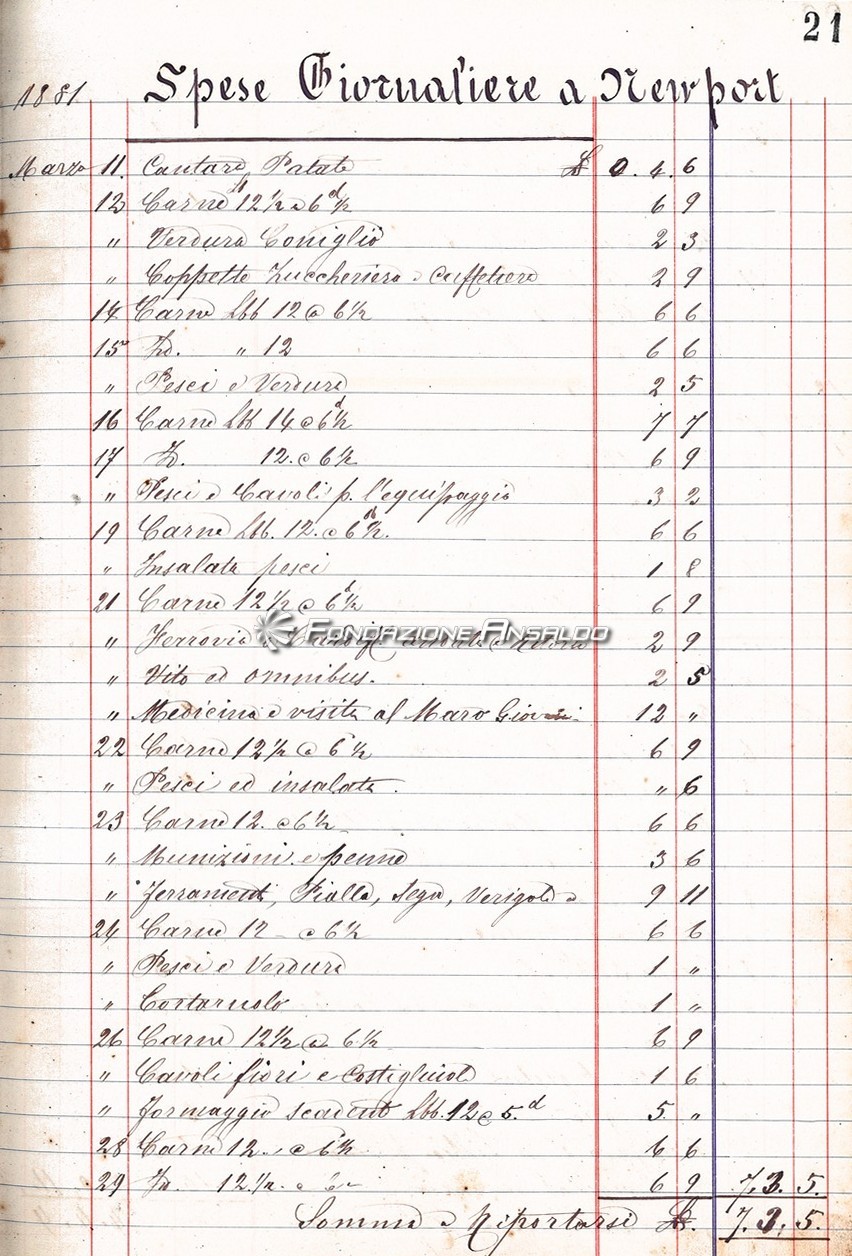 21
1881 Spese Giornaliere a Newport
Marzo 11. Cantaro Patate £ 0. 4. 6
12 Carne 12 1/2 a 6 d 1/2 6 9
" Verdura Coniglio 2 3
" Coppette Zuccheriera e Caffetiera 2 9
14 Carne Lbb 12 a 6 1/2 6 6
15 Id. " 12 6 6
" Pesci e Verdura 2 5
16 Carne Lbb 14 a 6 d 1/2 7 7
17 Id. 12. a 6 1/2 6 9
" Pesci e Cavoli p. l'equipaggio 3 2
19 Carne Lbb. 12. a 6 d 1/2. 6 6
" Insalata pesci 1 8
21 Carne 12 1/2 a 6 d 1/2 6 9
" Ferrovia a 2 9
FONDAZIONE ANSALDO
" Vito ed omnibus. 2 5
" Medicina e visita al Maro 12 "
22 Carne 12 1/2 a 6 1/2 6 9
" Pesci ed insalata. " 6
23 Carne 12. a 6 1/2 6 6
" Munizioni e penne 3 6
" Ferramenti, Pialla, Sega, Verigola a 9 11
24 Carne 12 - a 6 1/2 6 6
" Pesci e Verdura 1 "
" 1 "
26 Carne 12 1/2 a 6 1/2 6 9
" Cavoli fiori e Costigliuole 1 6
" Formaggio scadente Lbb. 12 a 5. d 5 "
28 Carne 12. a 6 1/2. 6 6
29 Id. 12 1/2. a 6 9 7. 3. 5.
Somma a Riportarsi £. 7. 3. 5.